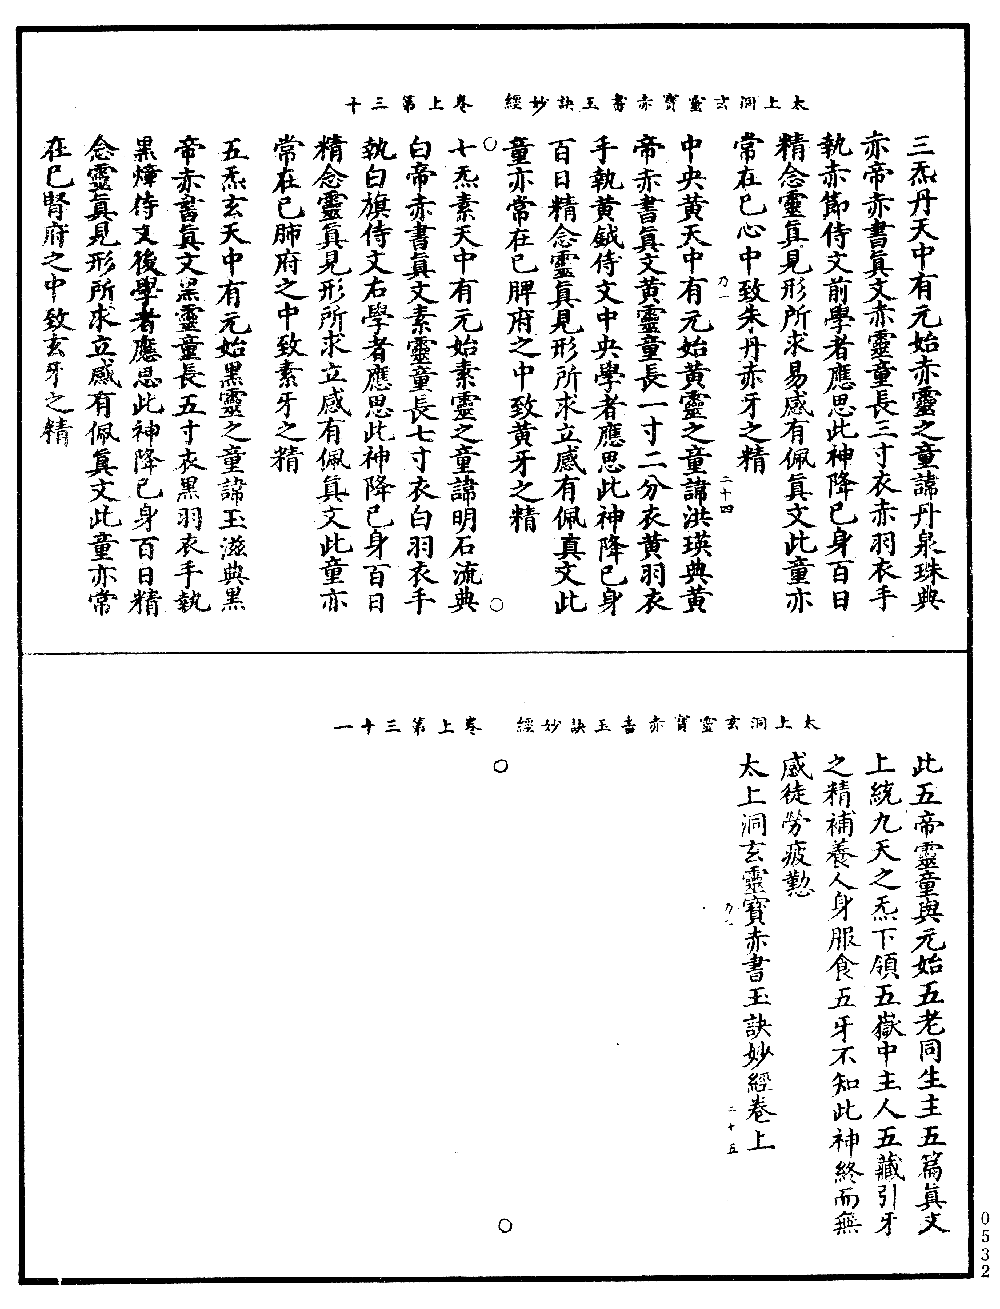 太上洞玄靈寶赤書玉訣妙經　卷上第三十
三炁丹天中有元始赤靈之童諱丹泉珠典
赤帝赤書眞文赤靈童長三寸衣赤羽衣手
執赤節侍文前學者應思此神降已身百日
精念靈眞見形所求易感有佩眞文此童亦
常在已心中致朱丹赤牙之精
中央黃天中有元始黃靈之童諱洪瑛典黃
帝赤書眞文黃靈童長一寸二分衣黃羽衣
手執黃鉞侍文中央學者應思此神降已身
百日精念靈眞見形所求立感有佩真文此
童亦常在已脾府之中致黃牙之精
七炁素天中有元始素靈之童諱明石流典
白帝赤書眞文素靈童長七寸衣白羽衣手
執白旗侍文右學者應思此神降已身百日
精念靈眞見形所求立感有佩眞文此童亦
常在已肺府之中致素牙之精
五炁玄天中有元始黑靈之童諱玉滋典黑
帝赤書眞文黑靈童長五寸衣黑羽衣手執
黑𤛆侍文後學者應思此神降已身百日精
念靈眞見形所求立感有佩眞文此童亦常
在已腎府之中致玄牙之精
乃一
二十四
太上洞玄靈寶赤書玉訣妙經　卷上第三十一
此五帝靈童與元始五老同生主五篇眞文
上統九天之炁下領五嶽中主人五藏引牙
之精補養人身服食五牙不知此神終而無
感徒勞疲懃
太上洞玄靈寶赤書玉訣妙經卷上
乃一
二十五
0532